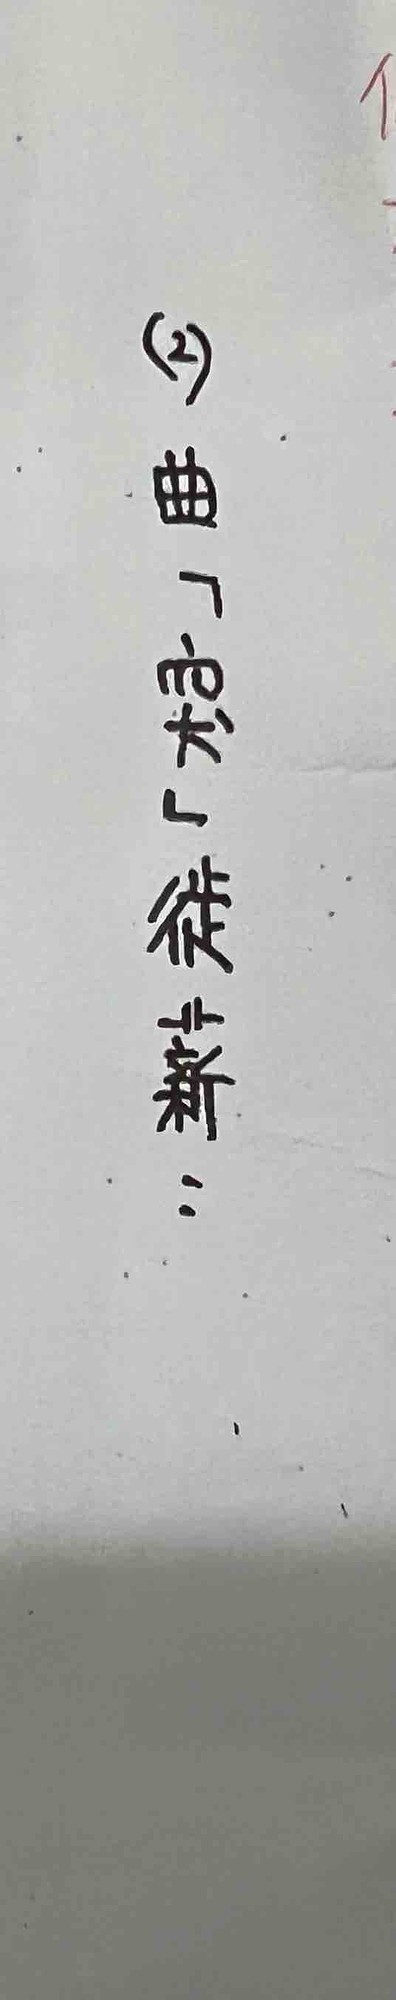 (2) 曲「突」徙薪：